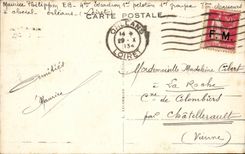 Maurice Philippon E.B. 4ème Escadron 1er peloton 1er groupe 7ème chasseurs
à cheval Orléans Loiret
CARTE POSTALE
ORLEANS
14 H
29 - X
1934
LOIRET
F. M
Amitiés
Maurice
Mademoiselle Madeleine
La Roche
Cne de Colombiers
par Châtellerault
(Vienne)